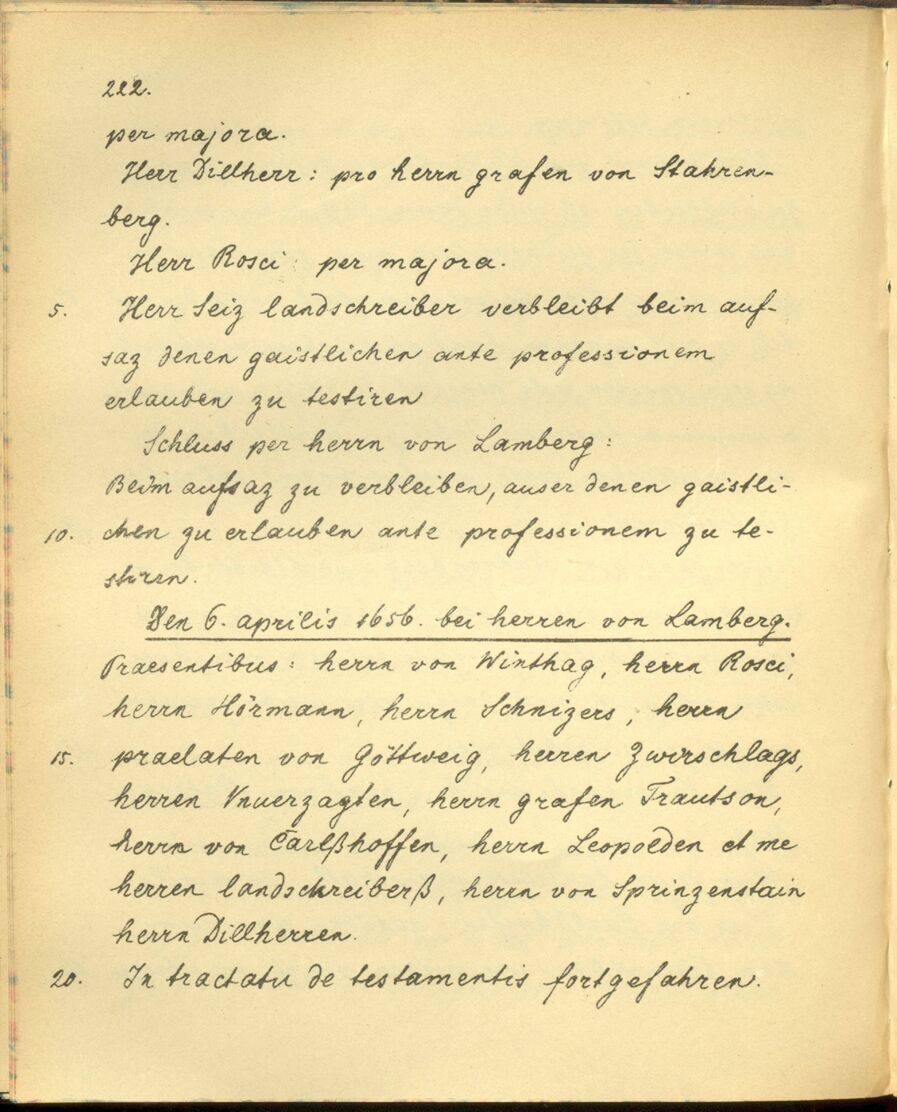 222.
per majora.
Herr Dillherr: pro herrn grafen von Stahren-
berg.
Herr Rosci: per majora.
5. Herr Seiz landschreiber verbleibt beim auf-
saz denen gaistlichen ante professionem
erlauben zu testiren
Schluss per herrn von Lamberg:
Beim aufsaz zu verbleiben, auser denen gaistli-
10. chen zu erlauben ante professionem zu te-
stirn.
Den 6. aprilis 1656. bei herren von Lamberg.
Praesentibus: herrn von Winthag, herrn Rosci,
herrn Hörmann, herrn Schnizers, herrn
15. praelaten von Göttweig, herren Zwirschlags,
herren Vnuerzagten, herrn grafen Trautson,
herrn von Carlßhoffen, herrn Leopolden et me
herren landschreiberß, herrn von Sprinzenstain
herrn Dillherren.
20. In tractatu de testamentis fortgefahren.